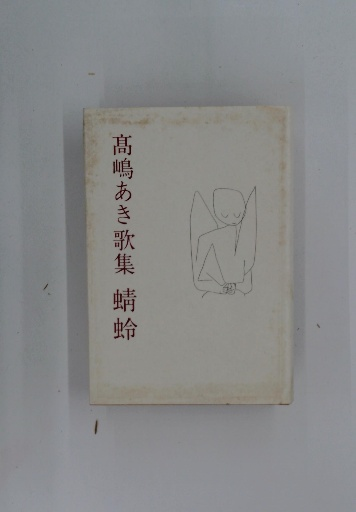 髙嶋あき歌集 蜻蛉